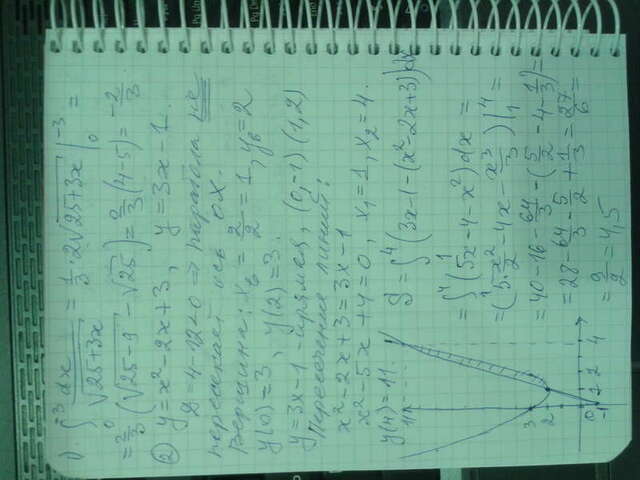 1). ∫₀⁻³ dx/√(25+3x) = 1/3 · 2√(25+3x) |₀⁻³ =
= 2/3 (√(25-9) - √25) = 2/3 (4-5) = -2/3.
② y = x² - 2x + 3, y = 3x - 1.
D = 4 - 12 < 0 ⇒ парабола не
пересекает ось ox.
Вершина: x_в = 2/2 = 1, y_в = 2
y(0) = 3, y(2) = 3.
y = 3x - 1 - прямая, (0,-1) (1,2)
Пересечение линий:
x² - 2x + 3 = 3x - 1
x² - 5x + 4 = 0, x₁ = 1, x₂ = 4.
y(4) = 11.
S = ∫₁⁴ (3x - 1 - (x² - 2x + 3)) dx
= ∫₁⁴ (5x - 4 - x²) dx =
= (5x²/2 - 4x - x³/3) |₁⁴ =
= 40 - 16 - 64/3 - (5/2 - 4 - 1/3) =
= 28 - 64/3 - 5/2 + 1/3 = 27/6 =
= 9/2 = 4,5
11
3
2
0 1 2 4
-1